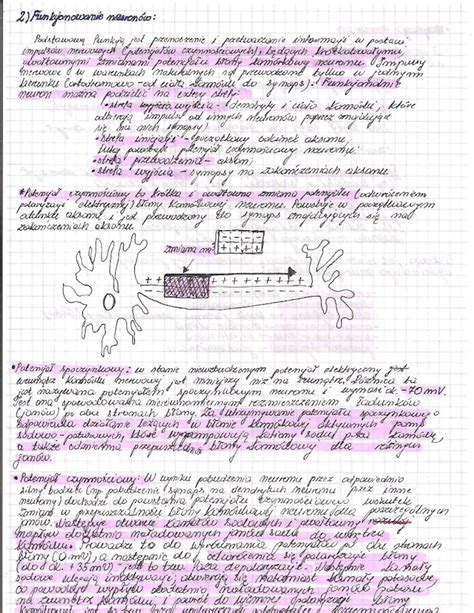 2) Funkcjonowanie neuronów:
Podstawową funkcją jest przenoszenie i przetwarzanie informacji w postaci
impulsów nerwowych (potencjałów czynnościowych), będących krótkotrwałymi,
gwałtownymi zmianami potencjału błony komórkowej neuronu. Impulsy
nerwowe w warunkach naturalnych są przewodzone tylko w jednym
kierunku (ortodromowo - od ciała komórki do synaps). Funkcjonalnie
neuron można podzielić na cztery strefy:
• strefa wejścia - dendryty i ciało komórki, które
odbierają impulsy od innych neuronów poprzez znajdujące
się na nich synapsy;
• strefa inicjacji - początkowy odcinek aksonu,
tutaj powstaje potencjał czynnościowy neuronu;
• strefa przewodzenia - akson;
• strefa wyjścia - synapsy na zakończeniach aksonu.
• Potencjał czynnościowy to krótka i gwałtowna zmiana potencjału (odwróceniem
polaryzacji elektrycznej) błony komórkowej neuronu. Powstaje w początkowym
odcinku aksonu i jest przewodzony do synaps znajdujących się na
zakończeniach aksonu.
zmiana
+ + + +
• Potencjał spoczynkowy: w stanie niepobudzonym potencjał elektryczny jest
wewnątrz komórki nerwowej jest mniejszy niż na zewnątrz. Różnica ta
jest nazywana potencjałem spoczynkowym neuronu wynosi ok -70 mV.
Jest ona spowodowana nierównomiernym rozmieszczeniem ładunków
(jonów) po obu stronach błony. Za utrzymywanie potencjału spoczynkowego
odpowiada działanie leżących w błonie komórkowej aktywnych pomp
sodowo-potasowych, które wypompowują kationy sodu poza komórkę,
a także odmienna przepuszczalność błony komórkowej dla różnych
jonów.
• Potencjał czynnościowy: W wyniku pobudzenia neuronu przez odpowiednio
silny bodziec (np. pobudzenie synaps na dendrytach neuronu przez inne
neurony) dochodzi do powstania potencjału czynnościowego wskutek
zmian w przepuszczalności błony komórkowej neuronu dla poszczególnych
jonów. Następuje otwarcie kanałów sodowych i gwałtowny
napływ dodatnio naładowanych jonów sodu do wnętrza
komórki. Prowadzi to do wyrównania potencjałów po obu stronach
błony (0 mV), a następnie do odwrócenia się polaryzacji błony
(do ok. +35 mV) - jest to tzw. faza depolaryzacji. Następnie kanały
sodowe ulegają inaktywacji, otwierają się natomiast kanały potasowe,
co powoduje wypływ dodatnio naładowanych jonów potasu
na zewnątrz komórki, i powrót do wyjściowej polaryzacji błony